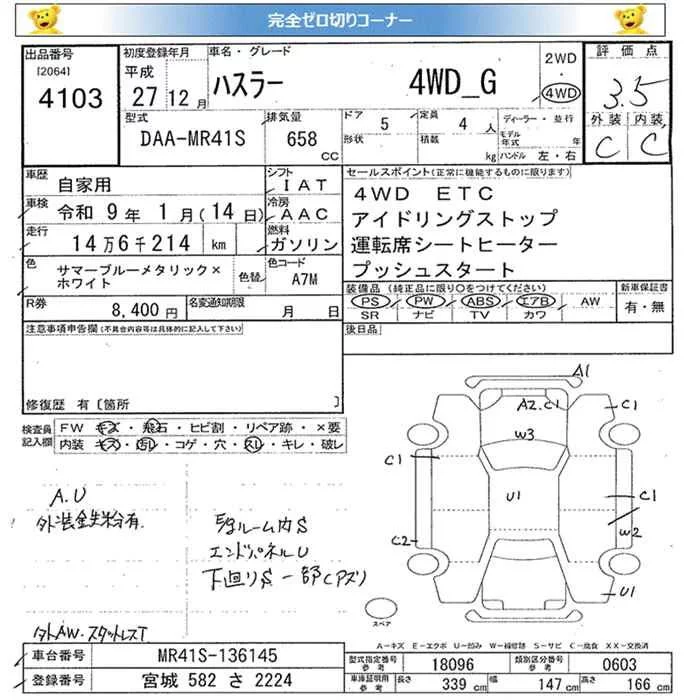 完全ゼロ切りコーナー
出品番号 初度登録年月 車名・グレード 2WD 評価点
[2064] 平成 ・
4103 27 12月 ハスラー 4WD_G 4WD 3.5
型式 排気量 ドア 5 定員 4人 ディーラー・並行 外装 内装
DAA-MR41S 658 CC 形状 積載 kg モデル年式 年 C C
ハンドル 左・右
車歴 自家用 シフト IAT セールスポイント(正常に機能するものに限ります)
車検 令和 9年 1月(14日) 冷房 AAC 4WD ETC
走行 14万6千214 km 燃料 ガソリン アイドリングストップ
運転席シートヒーター
色 サマーブルーメタリック× 色替 色コード A7M プッシュスタート
ホワイト
装備品(純正品に限り○をつけてください) 新車保証書
R券 8,400円 名変通知期限 月 日 PS PW ABS エアB AW 有・無
SR ナビ TV カワ
注意事項申告欄(不具合内容等は具体的に記入して下さい) 後日品
修復歴 有 [箇所 ]
検査員 FW キズ・飛石・ヒビ割・リペア跡・×要
記入欄 内装 キズ・汚レ・コゲ・穴・スレ・キレ・破レ
A.U
外装錆分有.
ルーム内S
エンドパネルU
下廻りS 一部C(アズリ)
外AW.スタットレスT
A1
A2.C1
C1
W3
C1
U1
C1
W2
C2
U1
スペア
A-キズ E-エクボ U-凹み W-補修跡 S-サビ C-腐食 XX-交換済
車台番号 MR41S-136145 型式指定番号 参考 18096 類別区分番号 参考 0603
登録番号 宮城 582 さ 2224 車庫証明用 参考 長さ 339 cm 幅 147 cm 高さ 166 cm